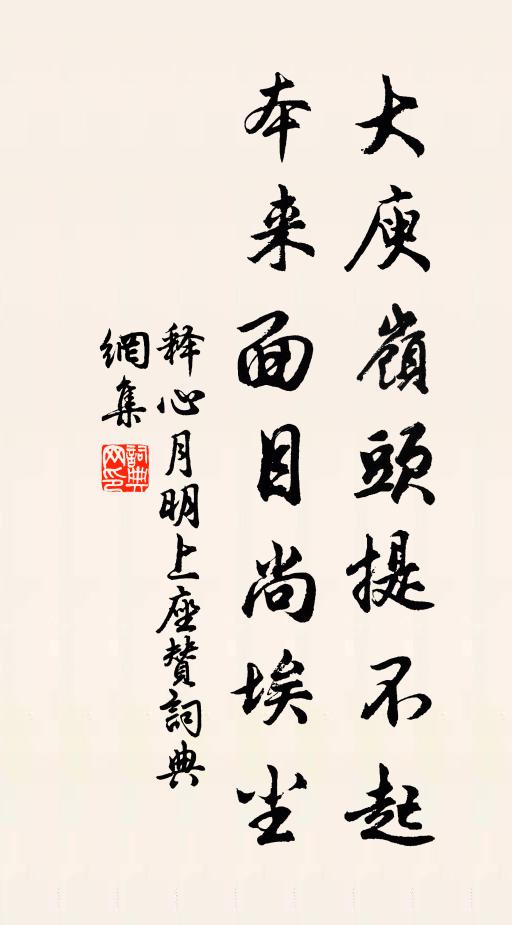 大庾嶺頭提不起
本来面目尚埃尘
释心月明上座赞詞典
網集
詞典网印